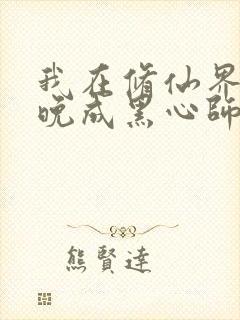 我在修仙界
晚成黑心師
熊賢達